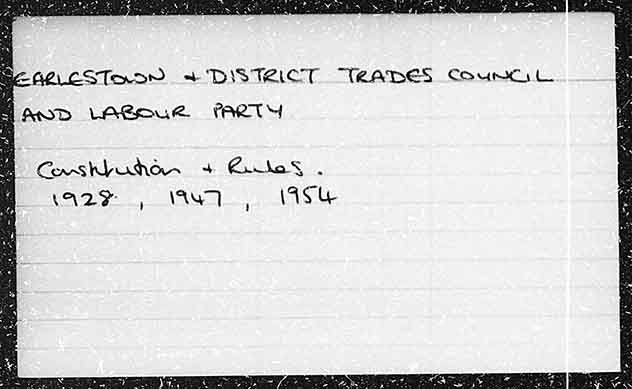 EARLESTOWN + DISTRICT TRADES COUNCIL
AND LABOUR PARTY
Constitution + Rules.
1928, 1947, 1954